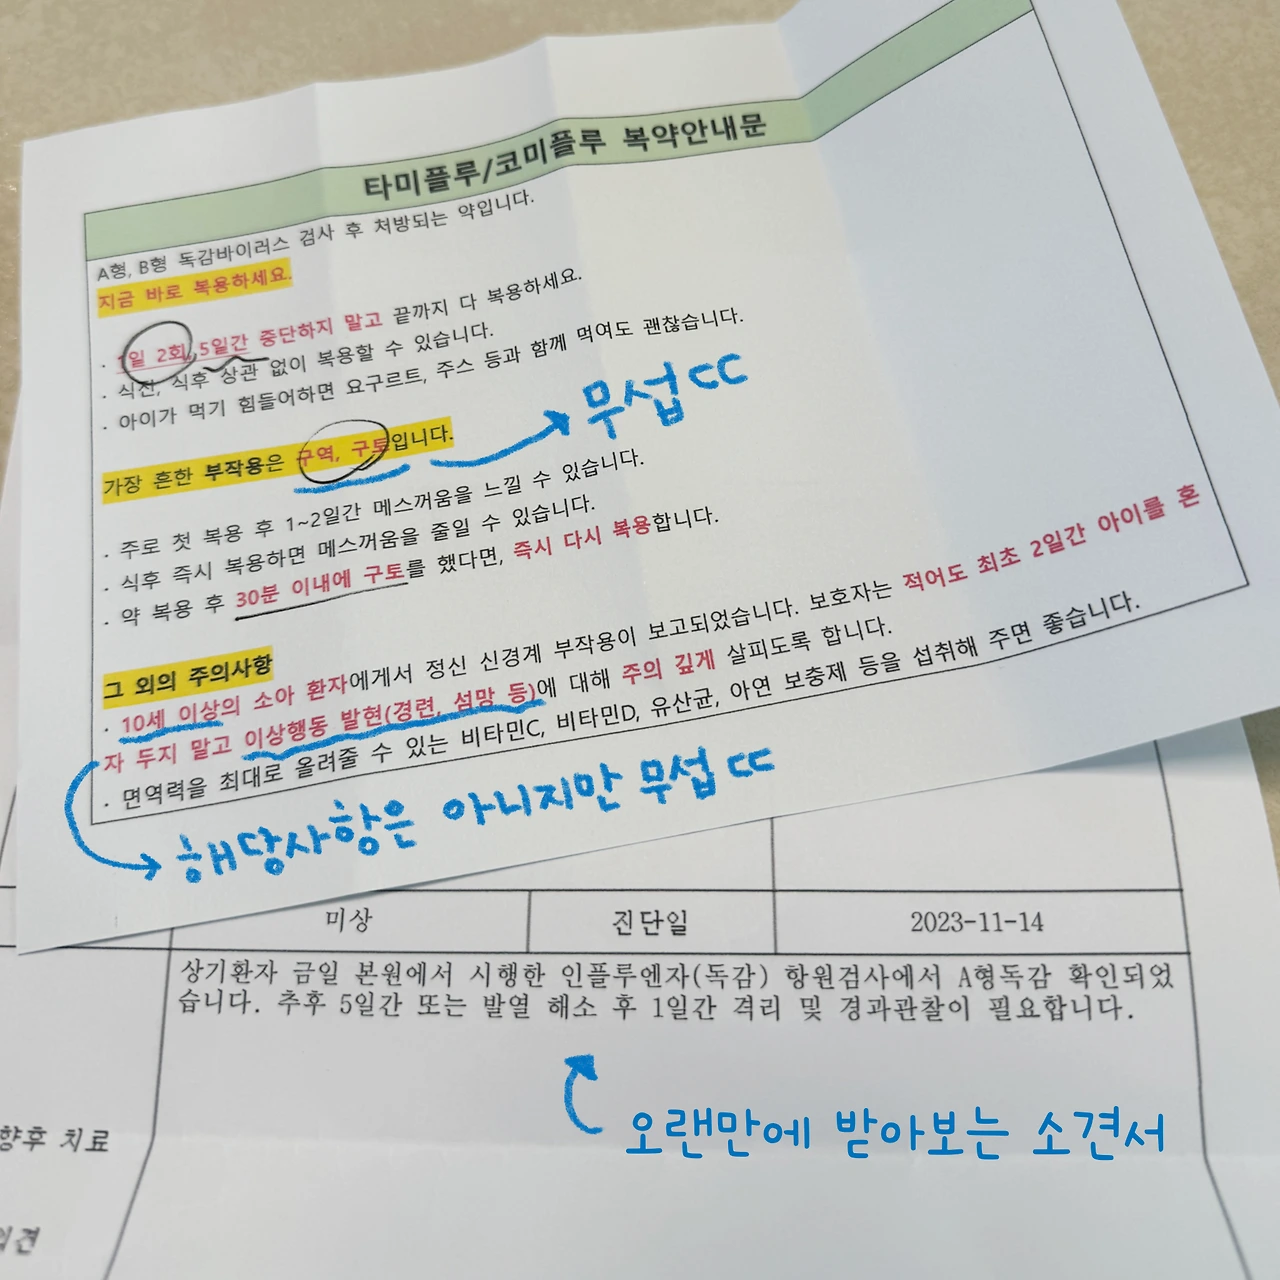 타미플루/코미플루 복약안내문
A형, B형 독감바이러스 검사 후 처방되는 약입니다.
지금 바로 복용하세요.
· 1일 2회, 5일간 중단하지 말고 끝까지 다 복용하세요.
· 식전, 식후 상관 없이 복용할 수 있습니다.
· 아이가 먹기 힘들어하면 요구르트, 주스 등과 함께 먹여도 괜찮습니다.
무섭ㄷㄷ
가장 흔한 부작용은 구역, 구토입니다.
· 주로 첫 복용 후 1~2일간 메스꺼움을 느낄 수 있습니다.
· 식후 즉시 복용하면 메스꺼움을 줄일 수 있습니다.
· 약 복용 후 30분 이내에 구토를 했다면, 즉시 다시 복용합니다.
그 외의 주의사항
· 10세 이상의 소아 환자에게서 정신 신경계 부작용이 보고되었습니다. 보호자는 적어도 최초 2일간 아이를 혼
자 두지 말고 이상행동 발현(경련, 섬망 등)에 대해 주의 깊게 살피도록 합니다.
· 면역력을 최대로 올려줄 수 있는 비타민C, 비타민D, 유산균, 아연 보충제 등을 섭취해 주면 좋습니다.
해당사항은 아니지만 무섭ㄷㄷ
미상 진단일 2023-11-14
상기환자 금일 본원에서 시행한 인플루엔자(독감) 항원검사에서 A형독감 확인되었
습니다. 추후 5일간 또는 발열 해소 후 1일간 격리 및 경과관찰이 필요합니다.
오랜만에 받아보는 소견서
향후 치료
의견